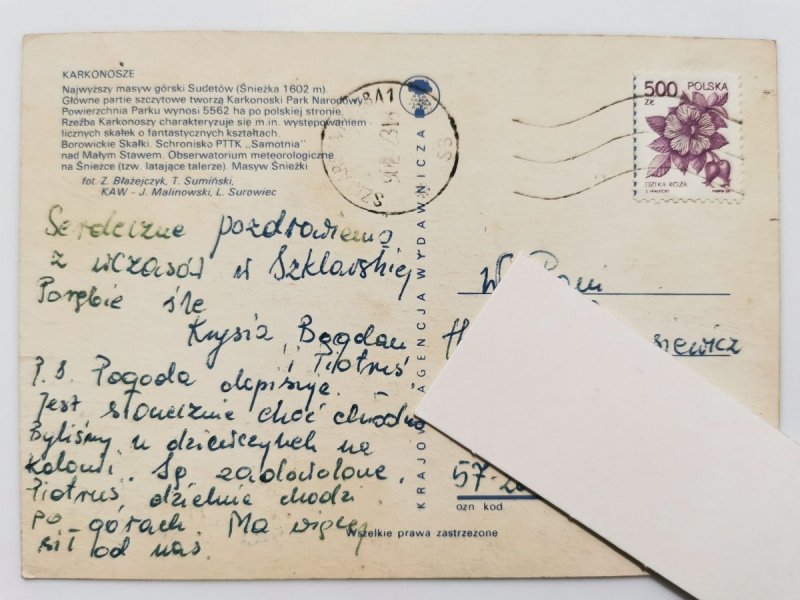 KARKONOSZE
Najwyższy masyw górski Sudetów (Śnieżka 1602 m).
Główne partie szczytowe tworzą Karkonoski Park Narodowy
Powierzchnia Parku wynosi 5562 ha po polskiej stronie.
Rzeźba Karkonoszy charakteryzuje się m.in. występowaniem
licznych skałek o fantastycznych kształtach.
Borowickie Skałki. Schronisko PTTK „Samotnia”
nad Małym Stawem. Obserwatorium meteorologiczne
na Śnieżce (tzw. latające talerze). Masyw Śnieżki
fot. Z. Błażejczyk, T. Sumiński,
KAW – J. Malinowski, L. Surowiec
Serdeczne pozdrowienia
z wczasów w Szklarskiej
Porębie śle
Krysia, Bogdan
i Piotruś
P.S. Pogoda dopisuje.
Jest słonecznie choć chłodno
Byliśmy u dziewczynek na
kolonii. Są zadowolone.
Piotruś dzielnie chodzi
po górach. Ma więcej
sił od nas.
KRAJOWA AGENCJA WYDAWNICZA
BA1
500
ZŁ
POLSKA
DZIKA RÓŻA
W. Pani
siewicz
57-2
ozn kod
Wszelkie prawa zastrzeżone